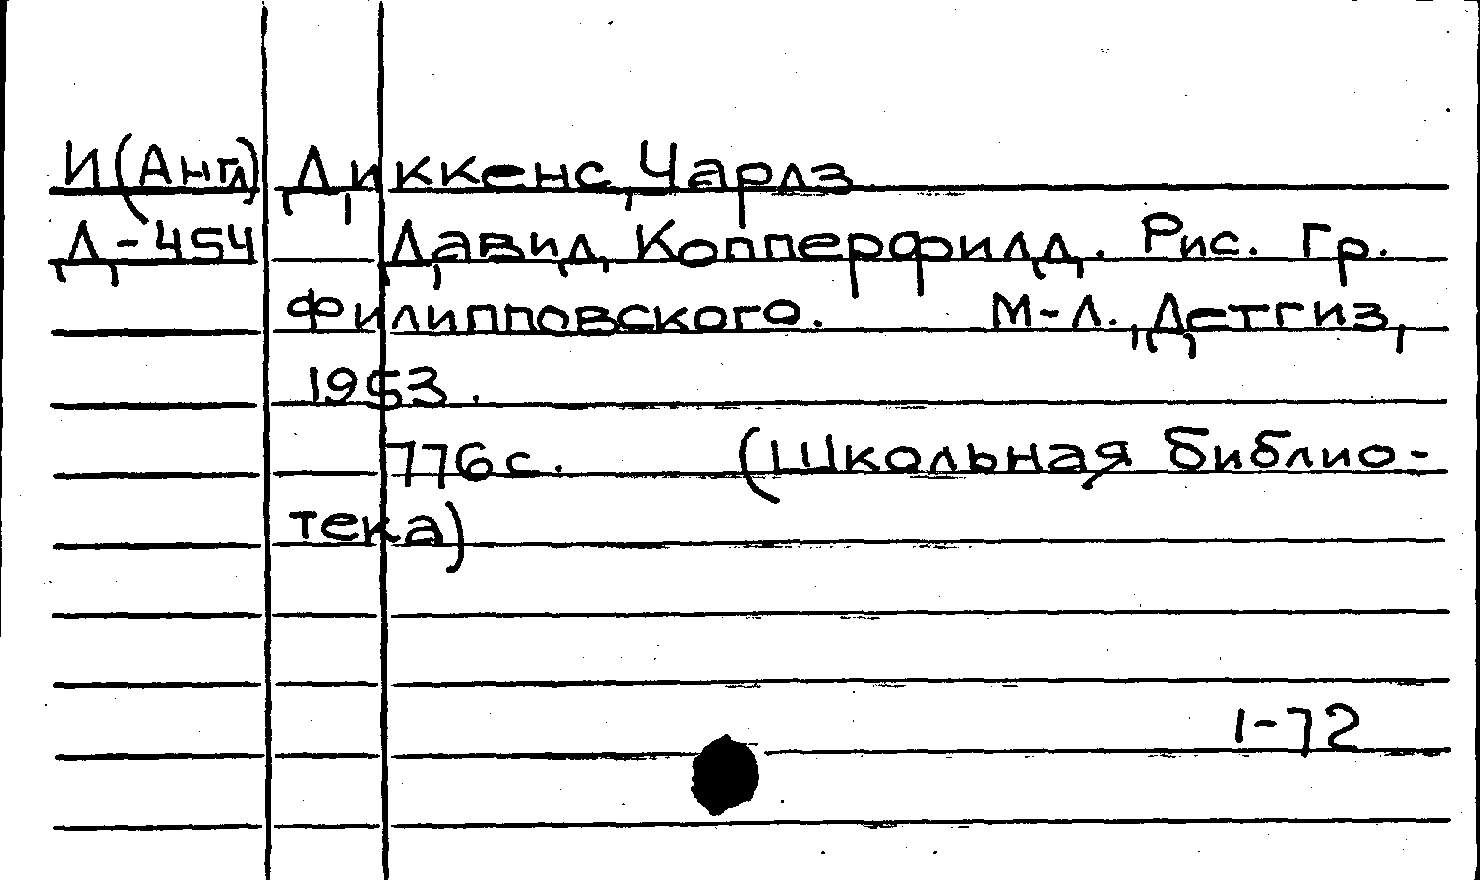 И(Англ) Диккенс, Чарлз
Д-454 Давид Копперфилд. Рис. Гр.
Филипповского. М-Л., Детгиз,
1953.
776с. (Школьная библио-
тека)
1-72